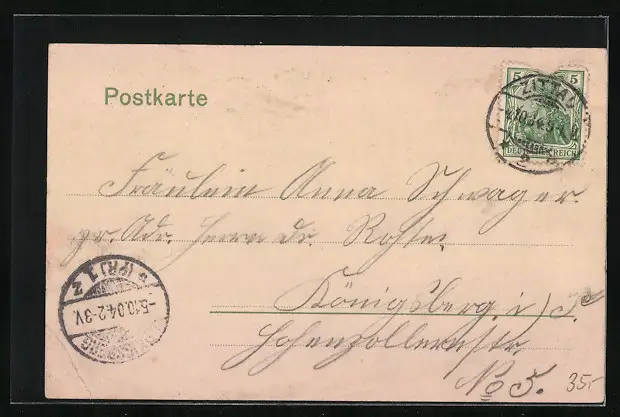 Postkarte
5 5
ZITTAU
DEUTSCHES REICH
2
Fräulein Anna Schwager.
pr. Adr. Herrn Dr.
Königsberg. i/
Hohenzollernstr.
No 5.
(PR) 1 Z
-5.10.04.2-3V.
35.-